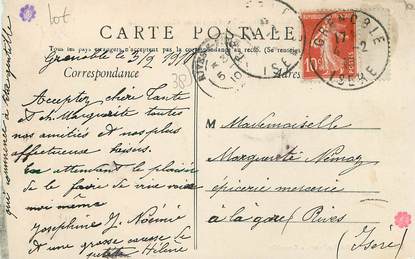 lot
CARTE POSTALE
Tous les pays étrangers n'acceptent pas la correspondance au recto. (Se renseigner
Grenoble le 3/2 1910
Correspondance
Adres
GRENOBLE
17
2
ISERE
10c
RIVES
5
10
ISE
Acceptez chère Tante
et M. Marguerite toutes
nos amitiés et nos plus
affectueux baisers.
En attendant le plaisir
de le faire de vive voix
moi même
Josephine J. Noémie
et une grosse caresse de
petite Hélène
qui commence à être gentille
M Mademoiselle
Marguerite
épicerie mercerie
à la gare Rives
(Isère)